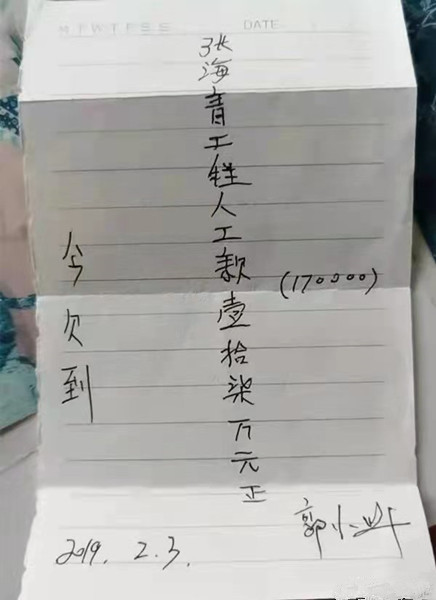 M T W T F S S DATE
今欠到
张海青工程人工款壹拾柒万元正
(170000)
2019. 2. 3.